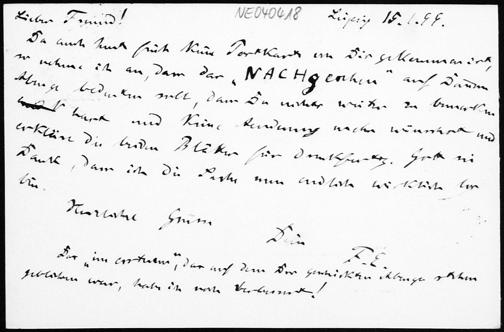 NE040418
Lieber Freund! Leipzig 15.1.99.
Da auch heut früh keine Postkarte von Dir gekommen ist,
so nehme ich an, dass das „NACHgerochen" auf Deinem
Abzuge bedeuten soll, dass Du nichts weiter zu bemerken
hast und keine Aenderung mehr wünschest und
erkläre die beiden Blätter für druckfertig. Gott sei
Dank, dass ich die Sache nun endlich wirklich los
bin.
Herzliche Grüsse
Dein
F. E.
Das „im", das auf dem Dir geschickten Abzuge stehen
geblieben war, habe ich noch verbessert!